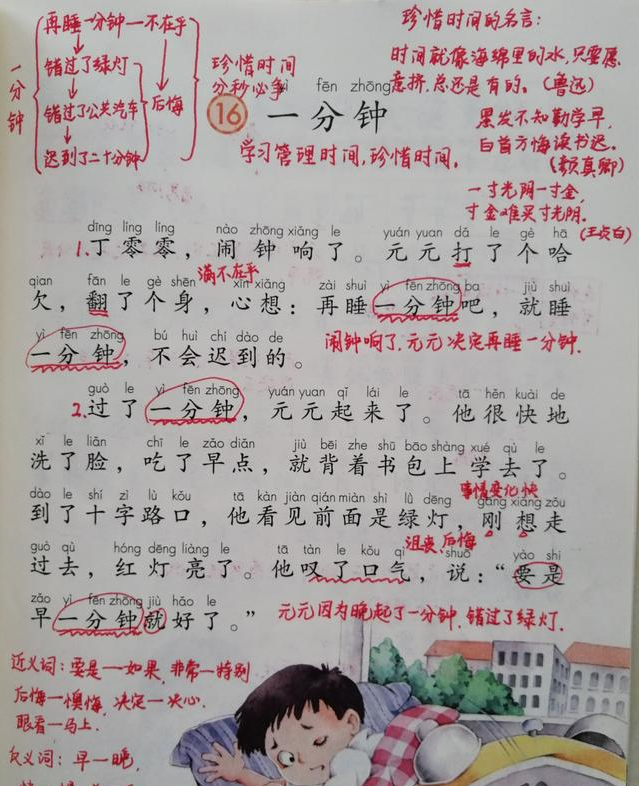 再睡一分钟一不在乎
错过了绿灯
错过了公共汽车
迟到了二十分钟
一分钟
后悔
珍惜时间
分秒必争
珍惜时间的名言：
时间就像海绵里的水，只要愿
意挤，总还是有的。（鲁迅）
黑发不知勤学早，
白首方悔读书迟。
（颜真卿）
一寸光阴一寸金，
寸金难买寸光阴。
（王贞白）
yì fēn zhōng
16 一分钟
学习管理时间，珍惜时间。
dīng líng líng nào zhōng xiǎng le yuán yuan dǎ le gè hā
1.丁零零，闹钟响了。元元打了个哈
qian fān le gè shēn xīn xiǎng zài shuì yì fēn zhōng ba jiù shuì
满不在乎
欠，翻了个身，心想：再睡一分钟吧，就睡
yì fēn zhōng bú huì chí dào de
一分钟，不会迟到的。
闹钟响了，元元决定再睡一分钟。
guò le yì fēn zhōng yuán yuan qǐ lái le tā hěn kuài de
2.过了一分钟，元元起来了。他很快地
xǐ le liǎn chī le zǎo diǎn jiù bēi zhe shū bāo shàng xué qù le
洗了脸，吃了早点，就背着书包上学去了。
dào le shí zì lù kǒu tā kàn jiàn qián miàn shì lǜ dēng gāng xiǎng zǒu
事情变化快
到了十字路口，他看见前面是绿灯，刚想走
guò qù hóng dēng liàng le tā tàn le kǒu qì shuō yào shi
沮丧、后悔
过去，红灯亮了。他叹了口气，说：“要是
zǎo yì fēn zhōng jiù hǎo le
早一分钟就好了。”
元元因为晚起了一分钟，错过了绿灯。
近义词：要是一如果，非常一特别
后悔一懊悔，决定一决心，
眼看一马上。
反义词：早一晚，